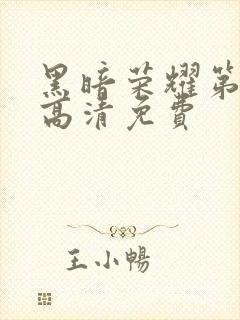 黑暗荣耀第
高清免费
王小暢